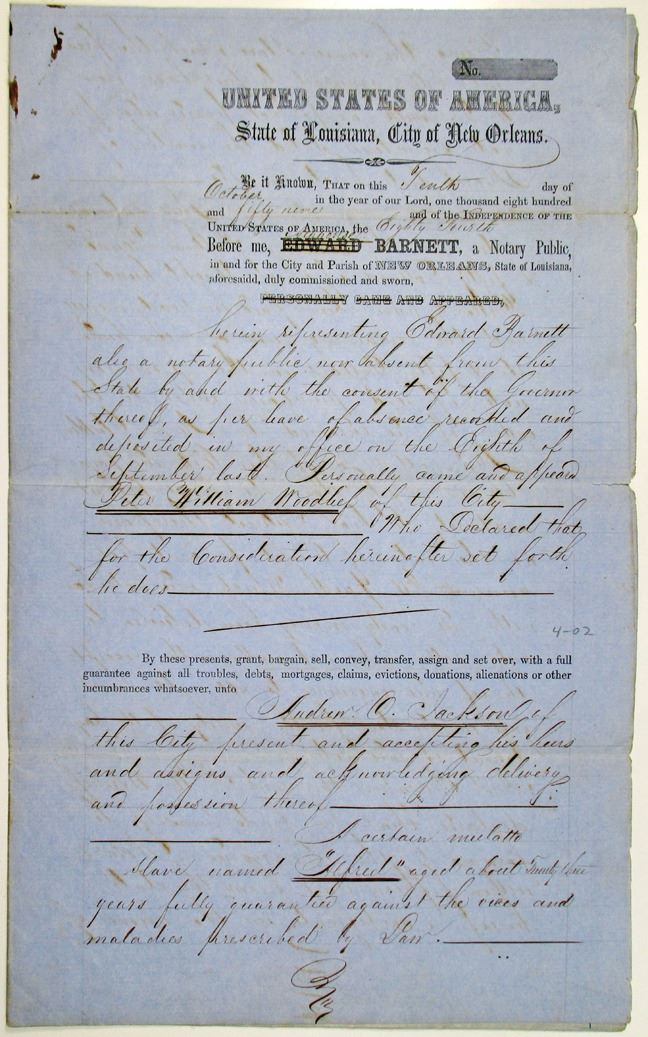 No.
UNITED STATES OF AMERICA,
State of Louisiana, City of New Orleans.
Be it Known, THAT on this Tenth day of
October in the year of our Lord, one thousand eight hundred
and fifty nine and of the INDEPENDENCE OF THE
UNITED STATES OF AMERICA, the Eighty Fourth
Before me, EDWARD BARNETT, a Notary Public,
in and for the City and Parish of NEW ORLEANS, State of Louisiana,
aforesaidd, duly commissioned and sworn,
PERSONALLY CAME AND APPEARED,
herein representing Edward Barnett
also a notary public now absent from this
State by and with the consent of the Governor
thereof, as per leave of absence recorded and
deposited in my office on the Eighth of
September last. Personally came and appeared
Peter William Woodlief of this City
Who Declared that
for the Consideration hereinafter set forth
he does
4-02
By these presents, grant, bargain, sell, convey, transfer, assign and set over, with a full
guarantee against all troubles, debts, mortgages, claims, evictions, donations, alienations or other
incumbrances whatsoever, unto
Andrew O. Jackson of
this City present and accepting his heirs
and assigns and acknowledging delivery
and possession thereof
A certain mulatto
Slave named "Alfred" aged about Twenty three
years fully guarantied against the vices and
maladies prescribed by Law.